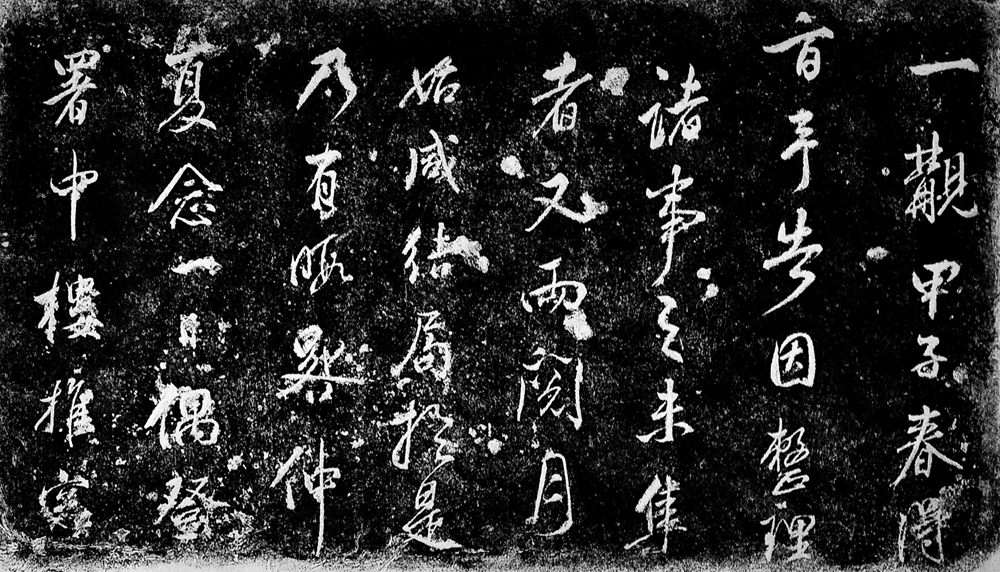 一觀甲子春得
旨予告因整理
諸事之未集
者又兩閱月
始咸結局於是
乃有暇晷仲
夏念一日偶登
署中樓推窗